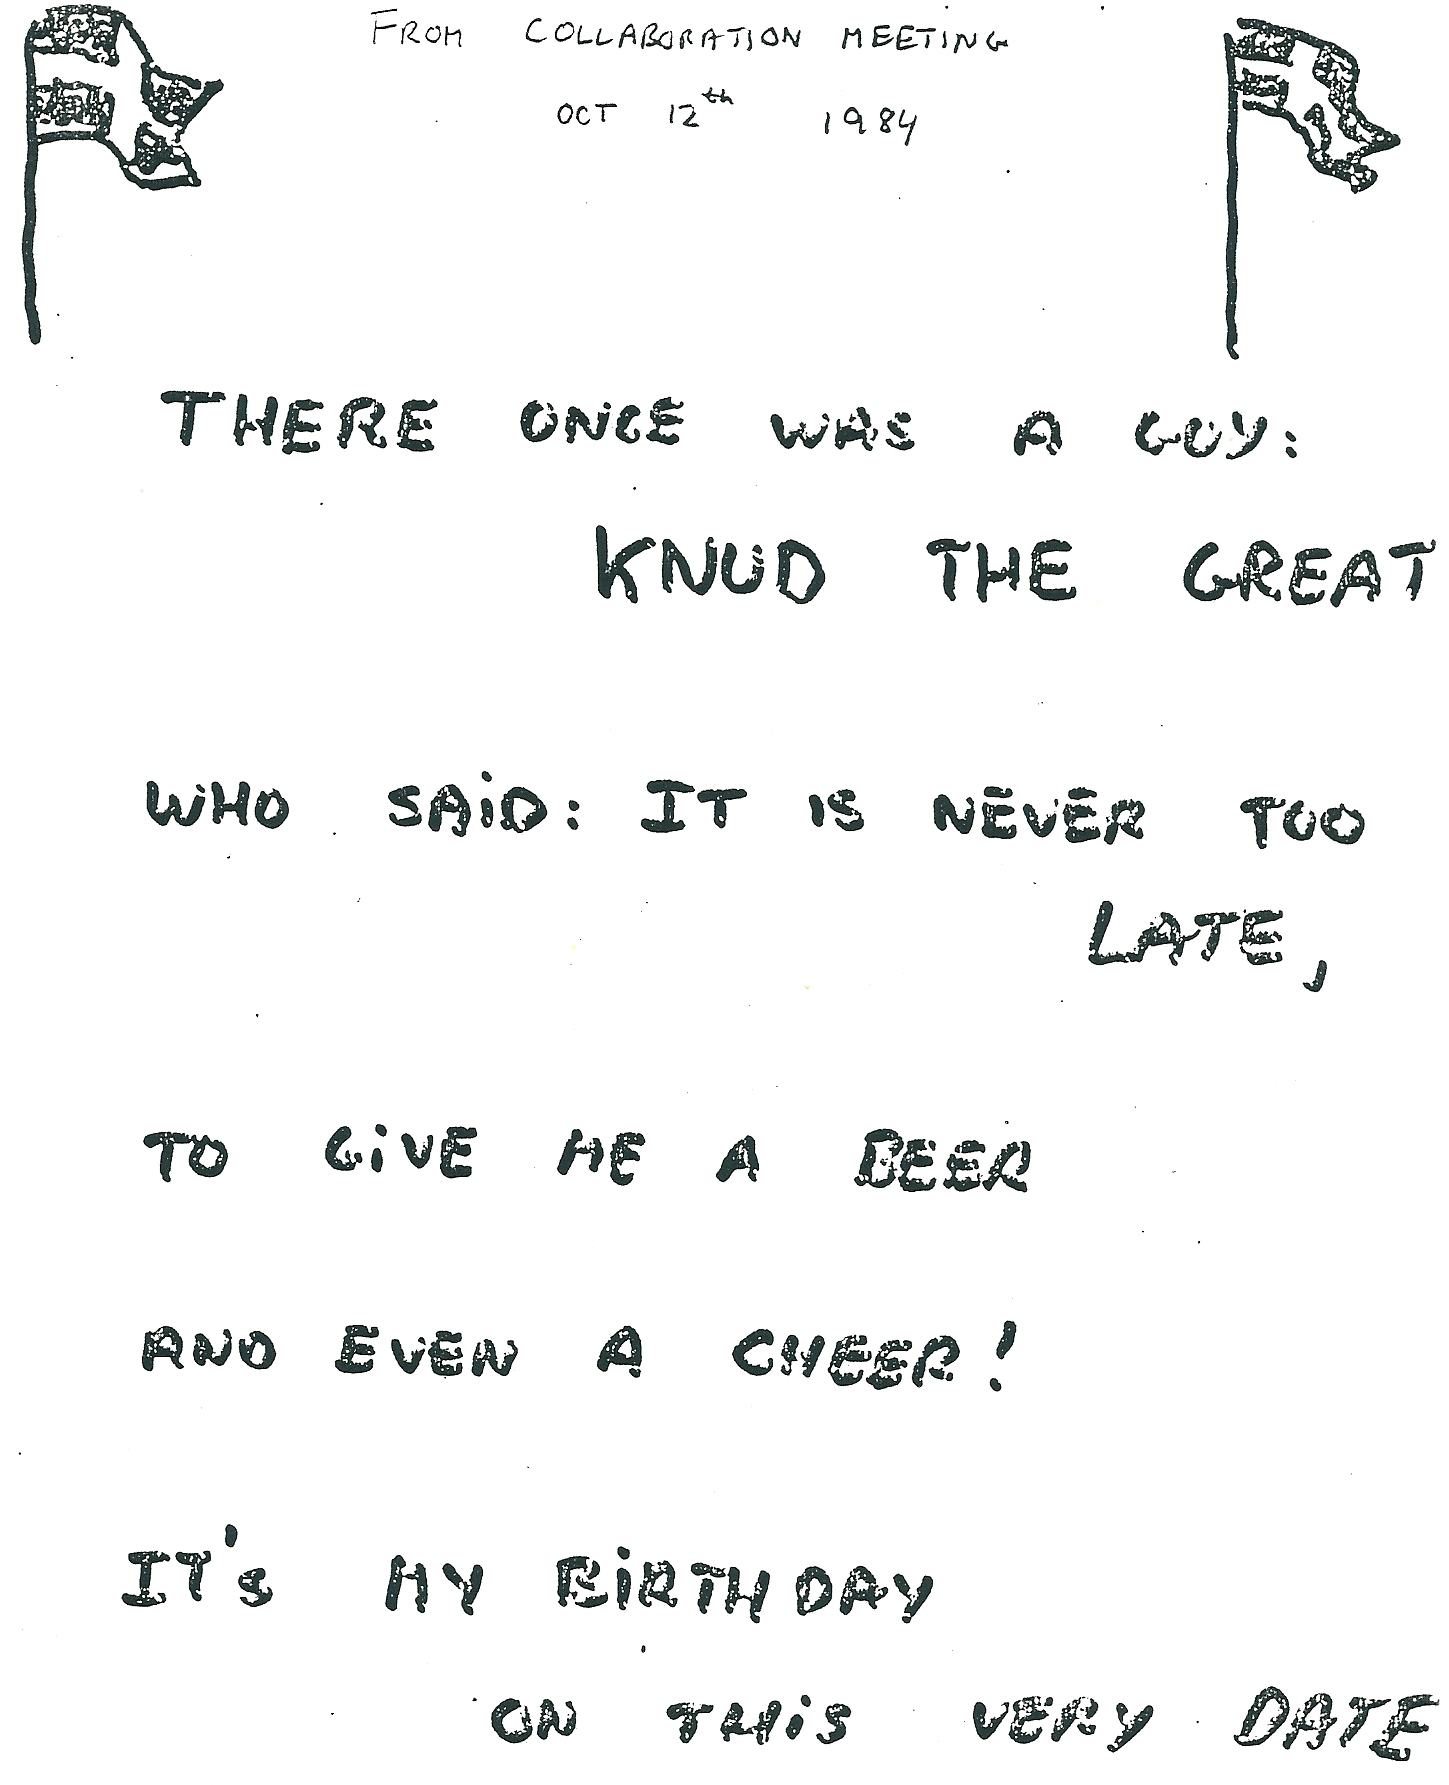 FROM COLLABORATION MEETING
OCT 12th 1984
THERE ONCE WAS A GUY:
KNUD THE GREAT
WHO SAID: IT IS NEVER TOO
LATE,
TO GIVE ME A BEER
AND EVEN A CHEER!
IT's MY BIRTHDAY
ON THIS VERY DATE